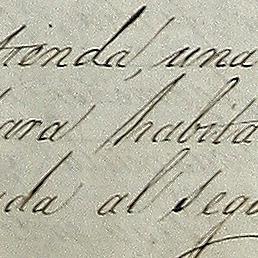 tienda, una
para habita
uda al segu